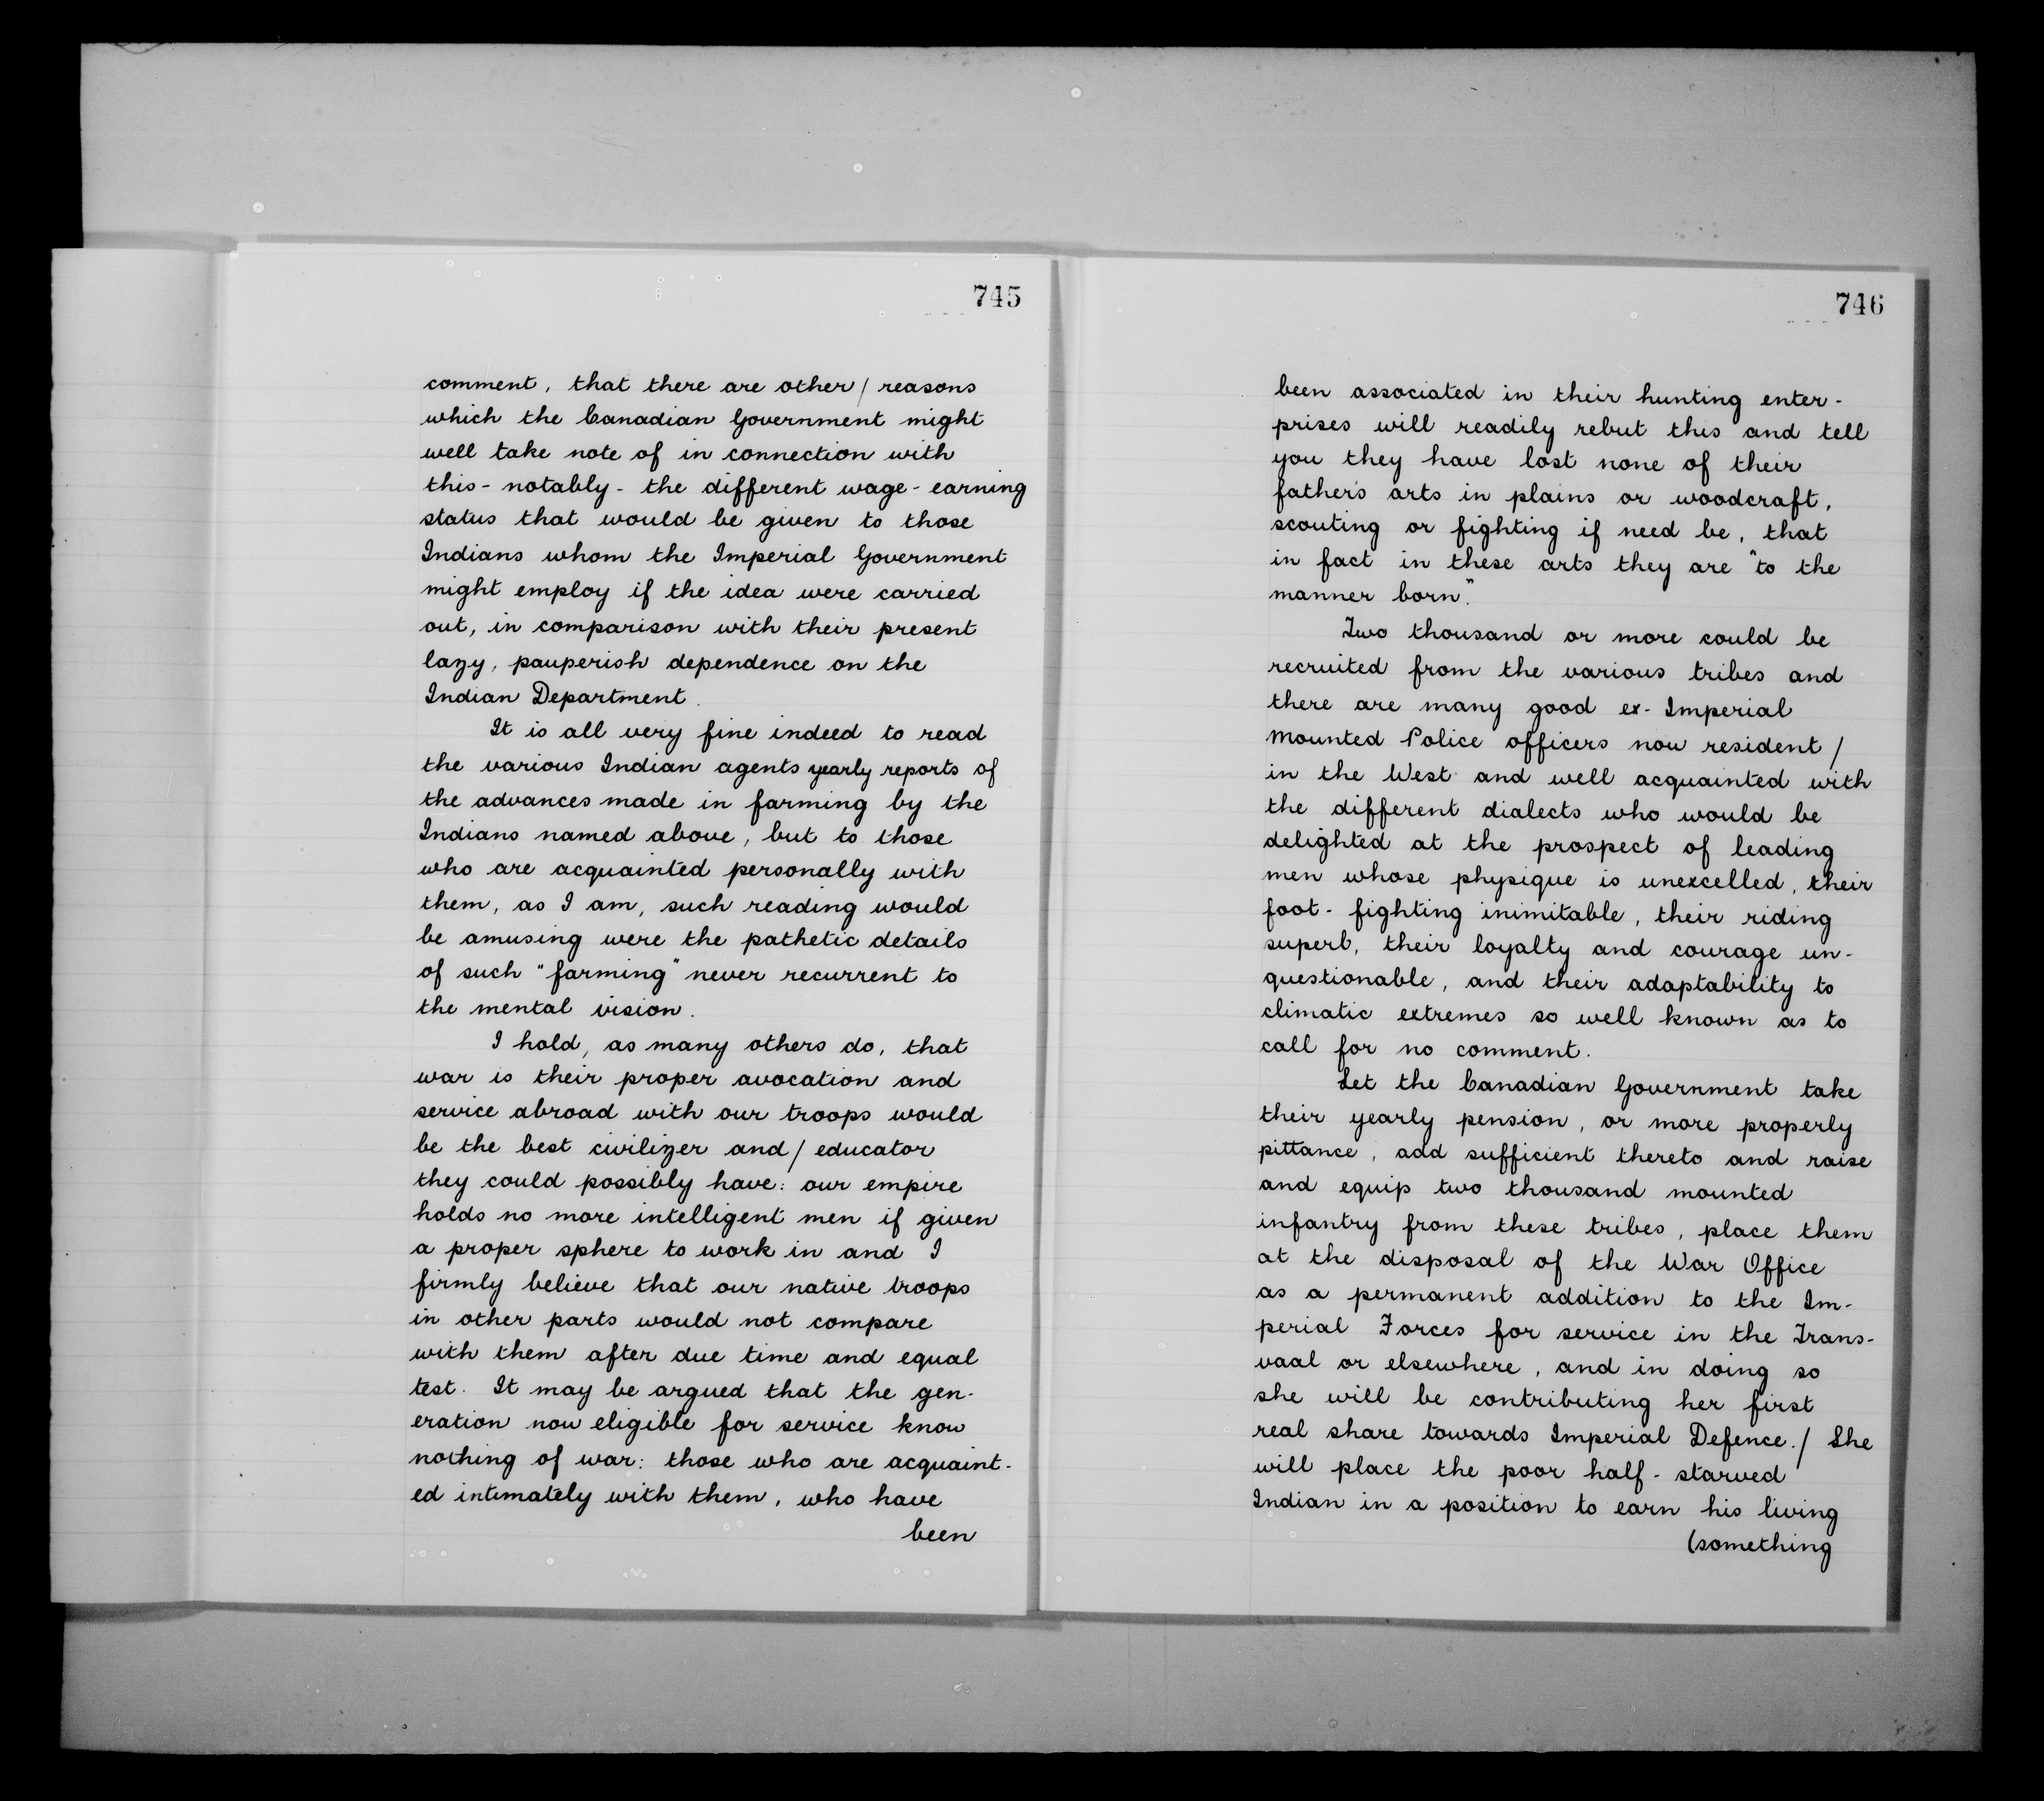 745
comment, that there are other / reasons
which the Canadian Government might
well take note of in connection with
this - notably - the different wage - earning
status that would be given to those
Indians whom the Imperial Government
might employ if the idea were carried
out, in comparison with their present
lazy, pauperish dependence on the
Indian Department.
It is all very fine indeed to read
the various Indian agents yearly reports of
the advances made in farming by the
Indians named above, but to those
who are acquainted personally with
them, as I am, such reading would
be amusing were the pathetic details
of such "farming" never recurrent to
the mental vision.
I hold, as many others do, that
war is their proper avocation and
service abroad with our troops would
be the best civilizer and / educator
they could possibly have: our empire
holds no more intelligent men if given
a proper sphere to work in and I
firmly believe that our native troops
in other parts would not compare
with them after due time and equal
test. It may be argued that the gen-
eration now eligible for service know
nothing of war: those who are acquaint-
ed intimately with them, who have
been
746
been associated in their hunting enter-
prises will readily rebut this and tell
you they have lost none of their
father's arts in plains or woodcraft,
scouting or fighting if need be, that
in fact in these arts they are "to the
manner born."
Two thousand or more could be
recruited from the various tribes and
there are many good ex- Imperial
Mounted Police officers now resident /
in the West and well acquainted with
the different dialects who would be
delighted at the prospect of leading
men whose physique is unexcelled, their
foot - fighting inimitable, their riding
superb, their loyalty and courage un-
questionable, and their adaptability to
climatic extremes so well known as to
call for no comment.
Let the Canadian Government take
their yearly pension, or more properly
pittance, add sufficient thereto and raise
and equip two thousand mounted
infantry from these tribes, place them
at the disposal of the War Office
as a permanent addition to the Im-
perial Forces for service in the Trans-
vaal or elsewhere, and in doing so
she will be contributing her first
real share towards Imperial Defence. / She
will place the poor half - starved
Indian in a position to earn his living
(something